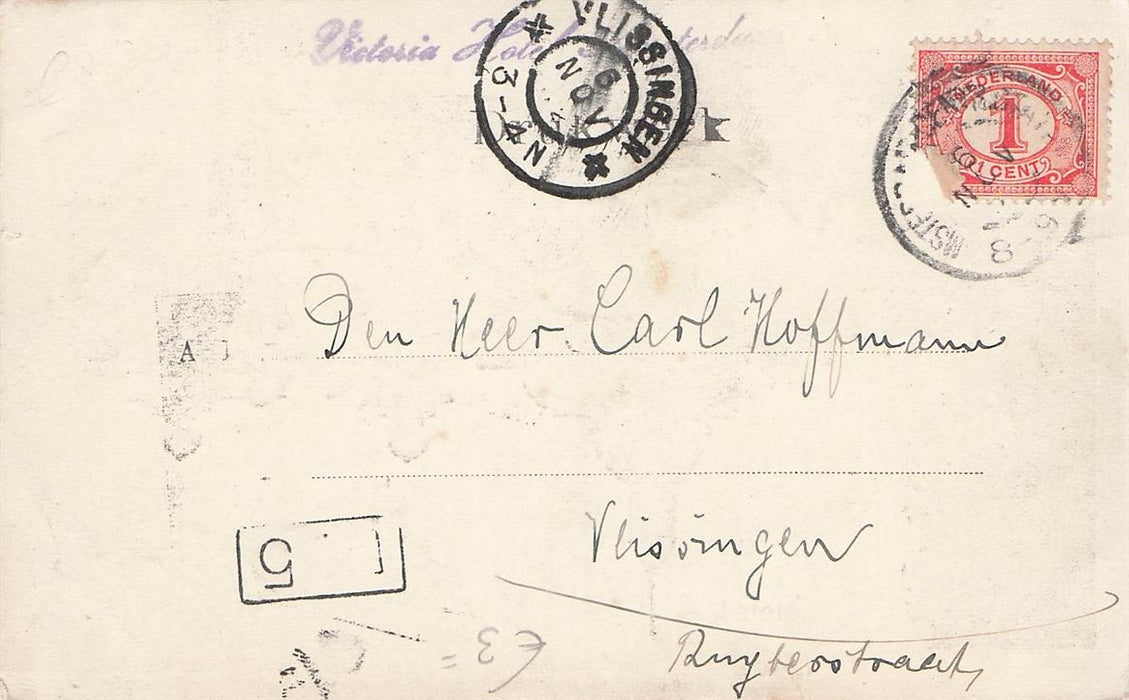 Victoria Hotel
VLISSINGEN
6
NOV
3-4 N
NEDERLAND
1
1 CENT
Den Heer Carl Hoffmann
A
Vlissingen
5
Ruyterstraat,
€3=